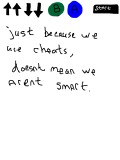 ↑↑↓↓ B A Start
just because we
use cheats,
doesnt mean we
arent smart.